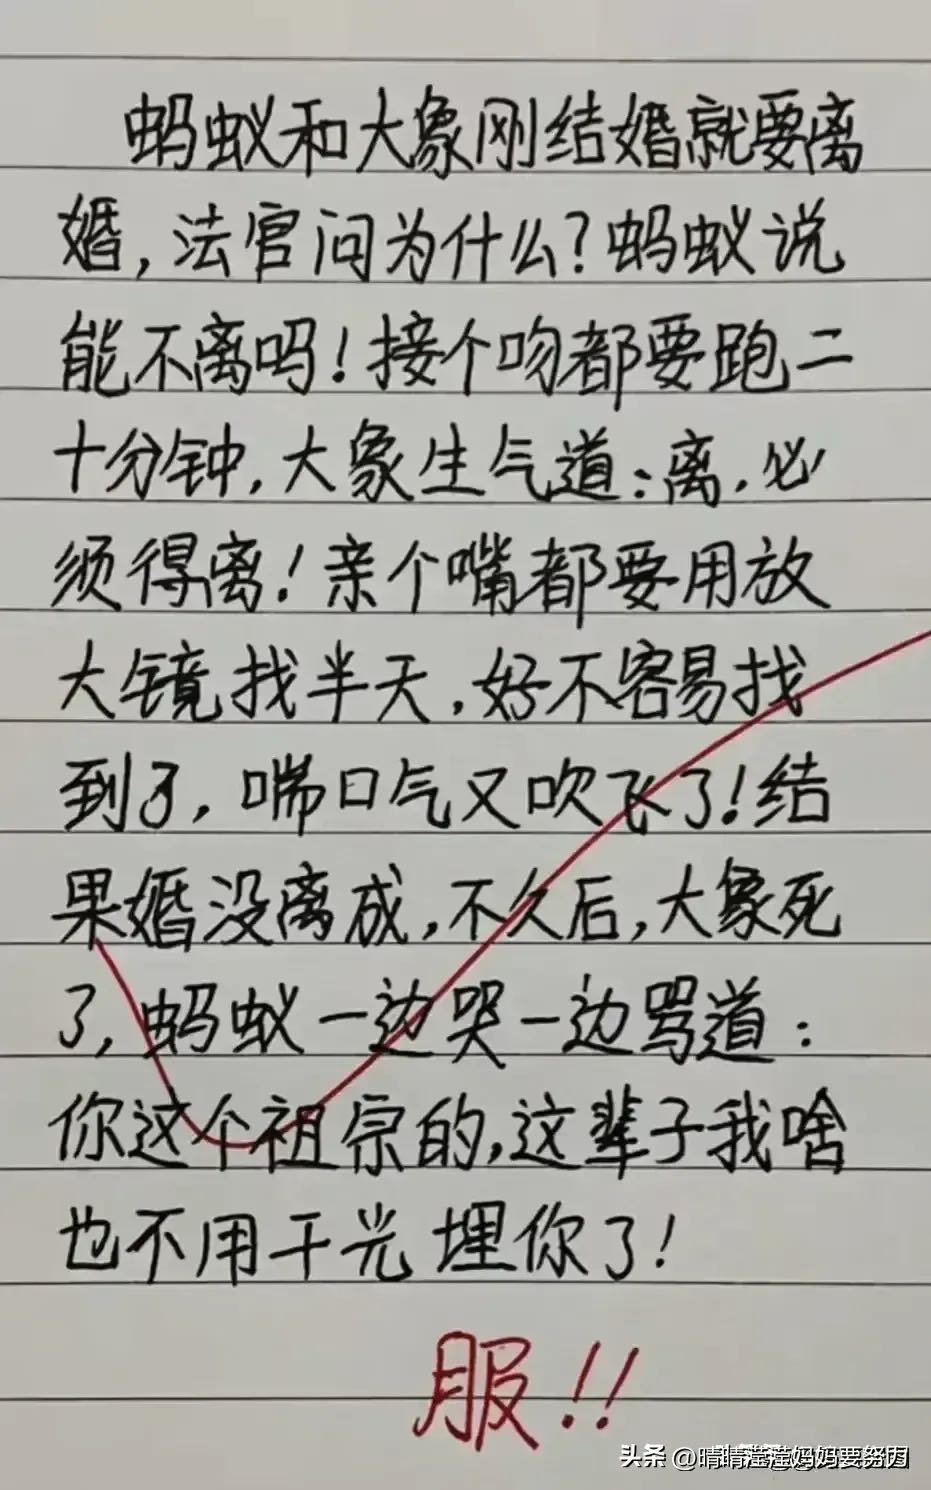 蚂蚁和大象刚结婚就要离
婚,法官问为什么?蚂蚁说
能不离吗!接个吻都要跑二
十分钟,大象生气道:离,必
须得离!亲个嘴都要用放
大镜找半天,好不容易找
到了,喘口气又吹飞了!结
果婚没离成,不久后,大象死
了,蚂蚁一边哭一边骂道:
你这个祖宗的,这辈子我啥
也不用干光埋你了!
服!!
头条 @晴晴滢滢妈妈要努力